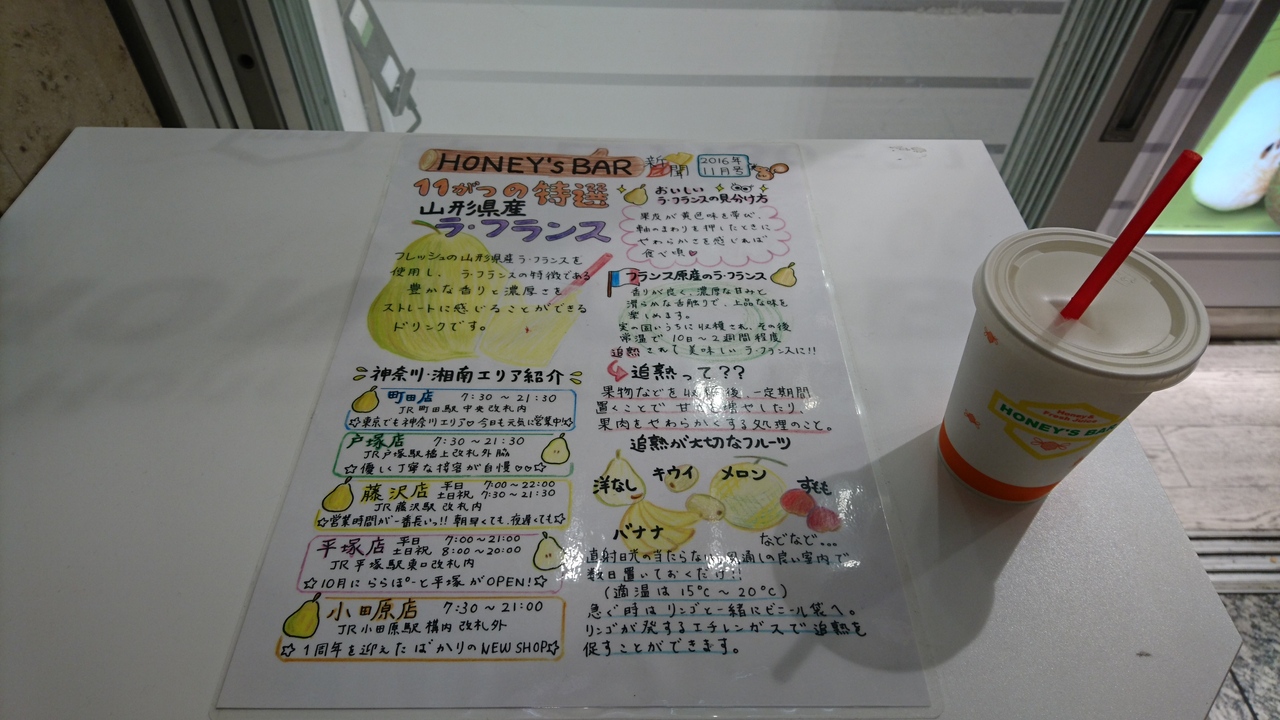 HONEY'S BAR 新聞 2016年 11月号
11がつの特選
山形県産
ラ・フランス
フレッシュの山形県産ラ・フランスを
使用し、ラ・フランスの特徴である
豊かな香りと濃厚さを
ストレートに感じることができる
ドリンクです。
神奈川・湘南エリア紹介
町田店 7:30～21:30
JR町田駅中央改札内
☆東京でも神奈川エリア♡今日も元気に営業中☆
戸塚店 7:30～21:30
JR戸塚駅橋上改札外脇
☆優しく丁寧な接客が自慢♡♡☆
藤沢店 平日 7:00～22:00
土日祝 7:30～21:30
JR藤沢駅改札内
☆営業時間が一番長いっ!!朝早くても、夜遅くても☆
平塚店 平日 7:00～21:00
土日祝 8:00～20:00
JR平塚駅東口改札内
☆10月にららぽーと平塚がOPEN!☆
小田原店 7:30～21:00
JR小田原駅構内改札外
☆1周年を迎えたばかりのNEW SHOP☆
おいしい
ラ・フランスの見分け方
果皮が黄色味を帯び、
軸のまわりを押したときに
やわらかさを感じれば
食べ頃♡
フランス原産のラ・フランス
香りが良く、濃厚な甘みと
滑らかな舌触りで、上品な味を
楽しめます。
実の固いうちに収穫され、その後
常温で10日～2週間程度
追熟されて美味しいラ・フランスに!!
追熟って??
果物などを収穫後、一定期間
置くことで甘さを増やしたり、
果肉をやわらかくする処理のこと。
追熟が大切なフルーツ
洋なし キウイ メロン すもも
バナナ などなど…
直射日光の当たらない風通しの良い室内で
数日置いておくだけ!!
(適温は15℃～20℃)
急ぐ時はリンゴと一緒にビニール袋へ。
リンゴが発するエチレンガスで追熟を
促すことができます。
Honey's
Fresh Juice
HONEY'S BAR